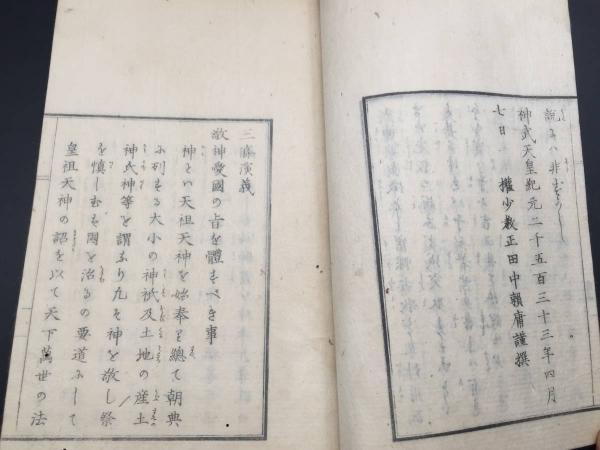 説みハ非ざるへし
神武天皇紀元二千五百三十三年四月
七日　權少教正田中頼庸謹撰
三條演義
敬神愛國の旨を體すべき事
神とハ天祖天神を始奉り總て朝典
に列する大小の神祇及土地の産土
神氏神等を謂ふなり凡そ神を敬し祭
を慎しむハ国を治るの要道にして
皇祖天神の詔を以て天下萬世の法